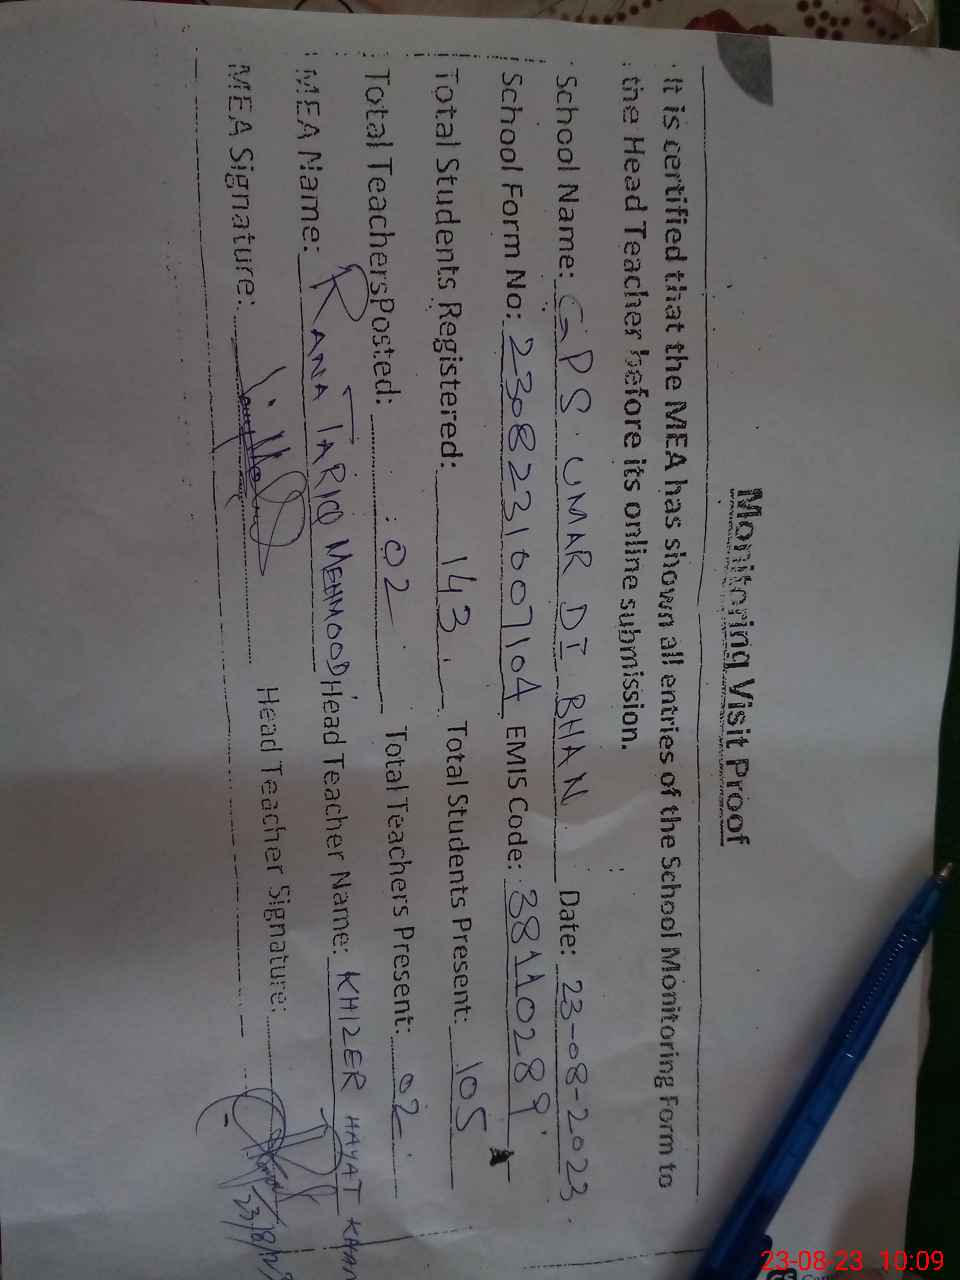 Monitoring Visit Proof
It is certified that the MEA has shown all entries of the School Monitoring Form to
the Head Teacher before its online submission.
School Name: GPS UMAR DI BHAN Date: 23-08-2023
School Form No: 2308231007104 EMIS Code: 38110289
Total Students Registered: 143 Total Students Present: 105
Total TeachersPosted: 02 Total Teachers Present: 02
MEA Name: RANA TARIQ MEHMOOD Head Teacher Name: KHIZER HAYAT KHAN
MEA Signature: Head Teacher Signature:
23/8/23
23-08-23 10:09